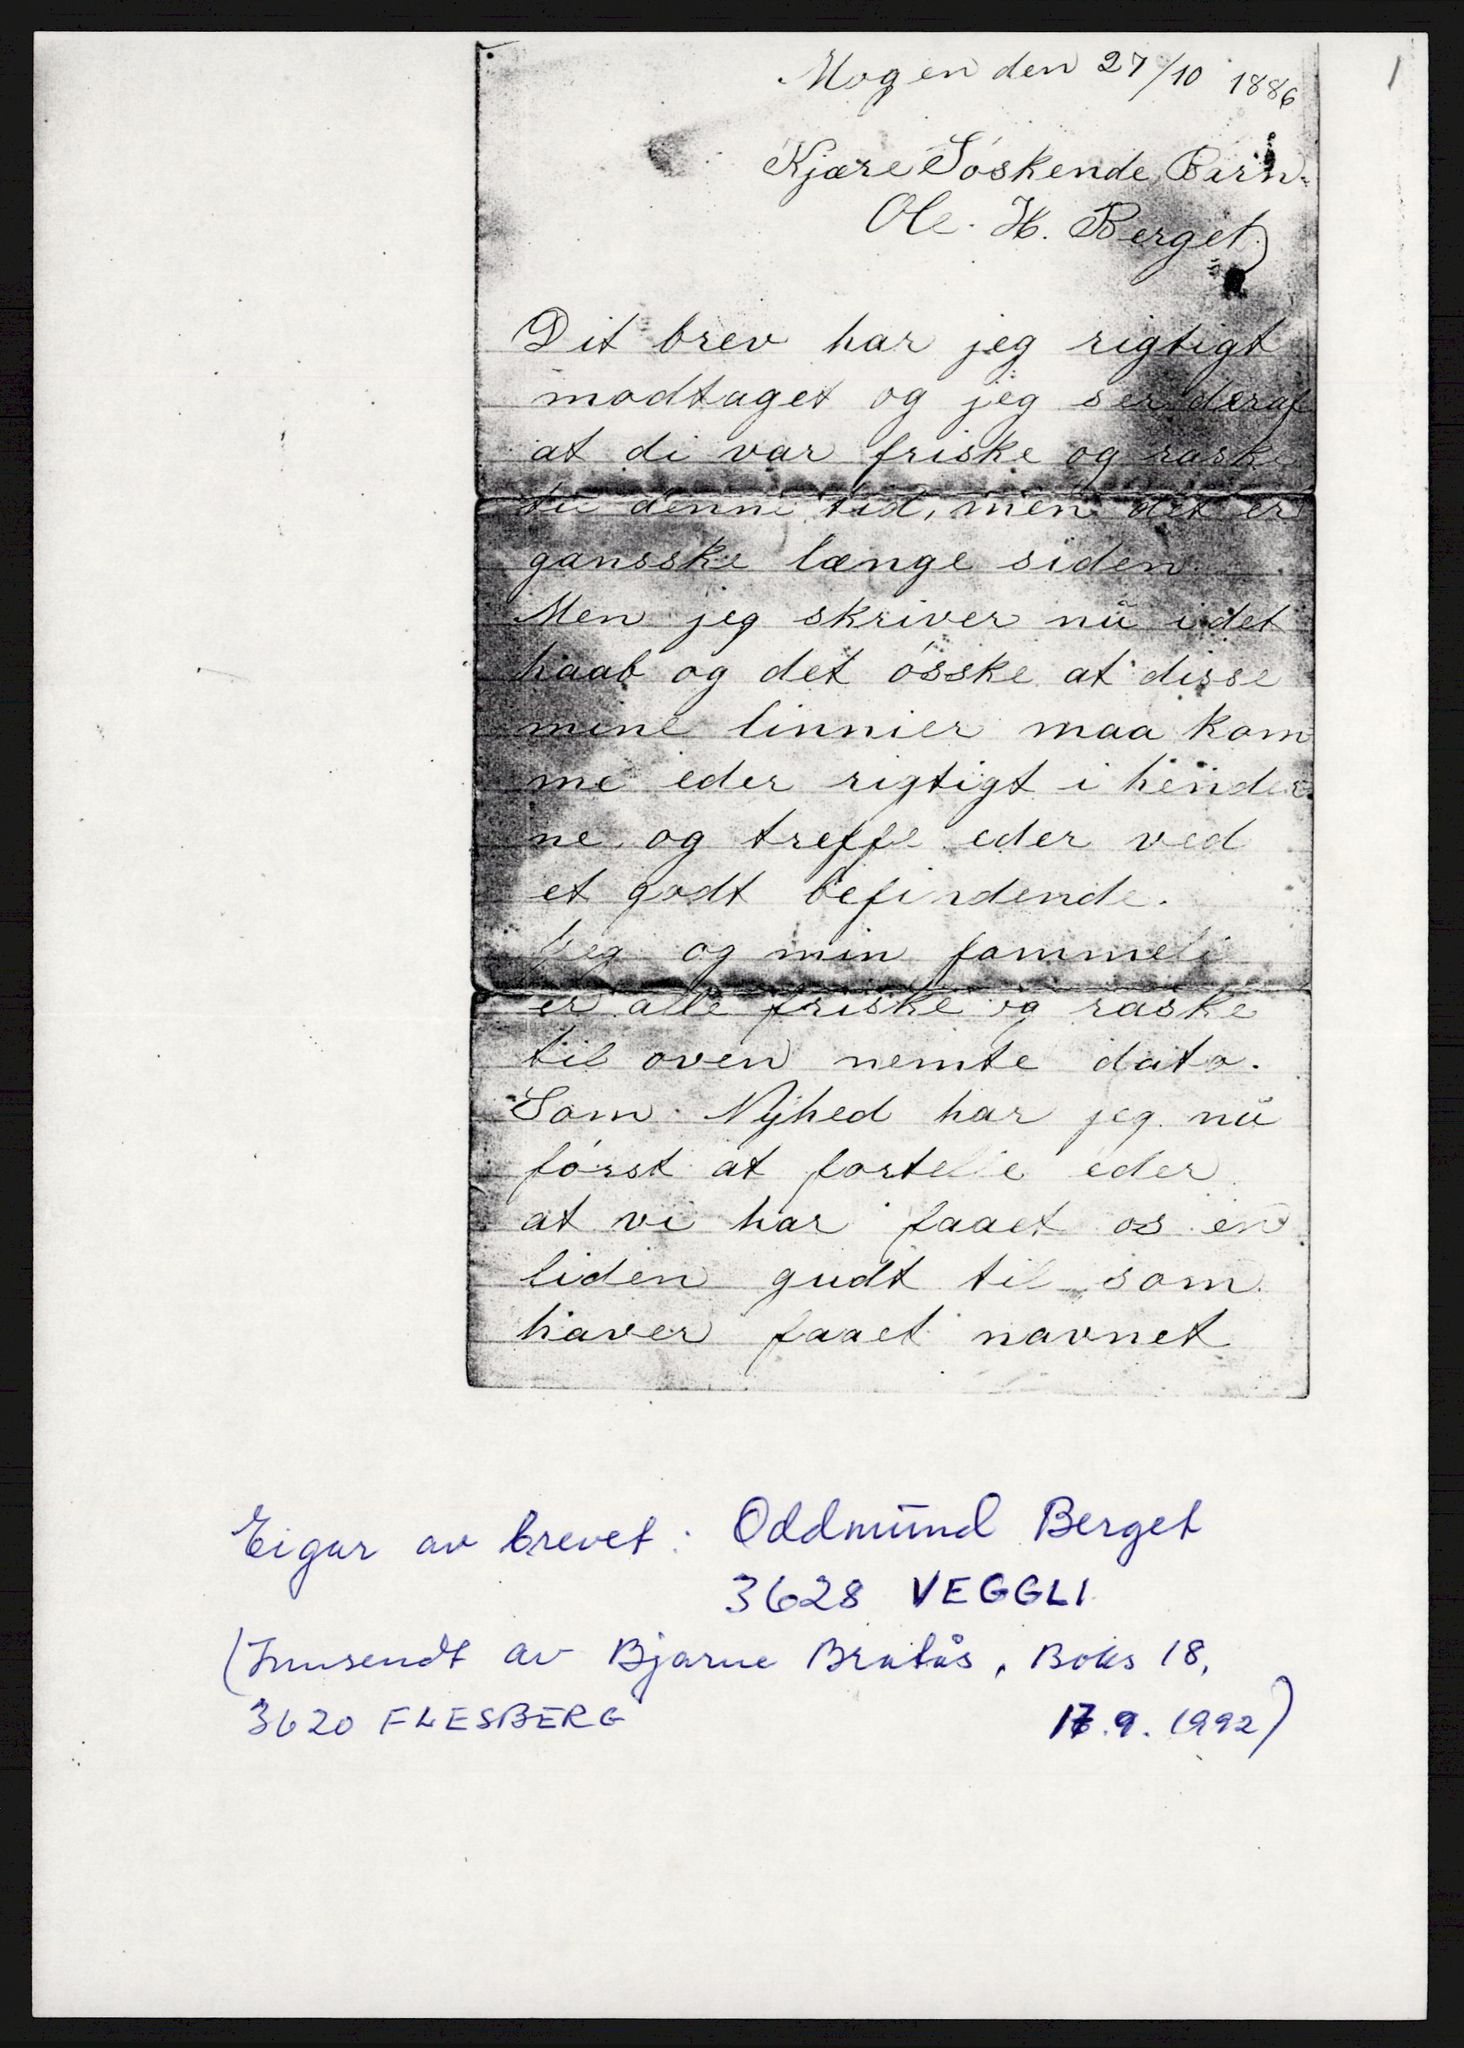 1
Mogen den 27/10 1886
Kjære Søskende Barn.
Ole. H. Berget
Dit brev har jeg rigtigt
modtaget og jeg ser deraf
at di var friske og raske
til denne tid, men det er
gansske længe siden.
Men jeg skriver nu i det
haab og det ósske at disse
mine linnier maa kom
me eder rigtigt i hender
ne og treffe eder ved
et godt befindende.
Jeg og min fammeli
er alle friske og raske
til oven nemte dato.
Som Nyhed har jeg nu
først at fortelle eder
at vi har faaet os en
liden gudt til som
haver faaet navnet
Eigar av brevet: Oddmund Berget
3628 VEGGLI
(Innsendt av Bjarne Bratås, Boks 18,
3620 FLESBERG 17.9.1992)